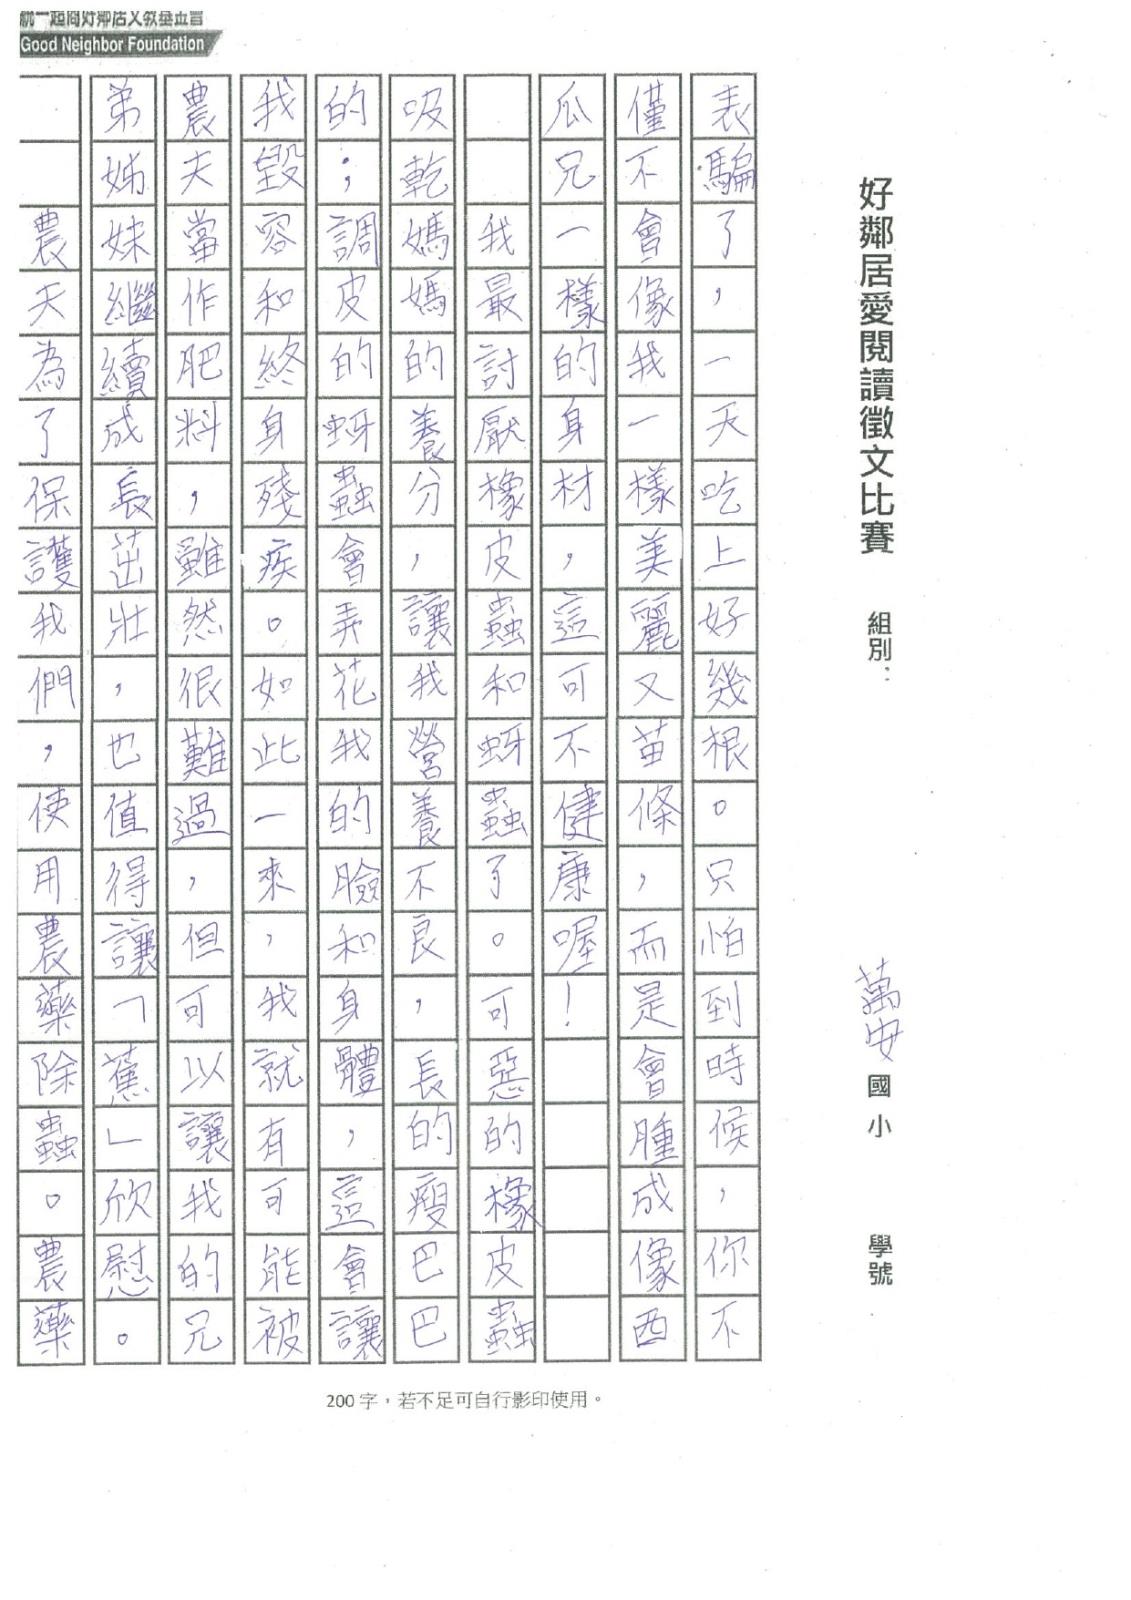 統一超商好鄰居文教基金會
Good Neighbor Foundation
好鄰居愛閱讀徵文比賽 組別： 萬安國小 學號
表騙了，一天吃上好幾根。只怕到時候，你不
僅不會像我一樣美麗又苗條，而是會腫成像西
瓜兄一樣的身材，這可不健康喔！
我最討厭橡皮蟲和蚜蟲了。可惡的橡皮蟲
吸乾媽媽的養分，讓我營養不良，長的瘦巴巴
的；調皮的蚜蟲會弄花我的臉和身體，這會讓
我毀容和終身殘疾。如此一來，我就有可能被
農夫當作肥料，雖然很難過，但可以讓我的兄
弟姊妹繼續成長茁壯，也值得讓「蕉」欣慰。
農夫為了保護我們，使用農藥除蟲。農藥
200字，若不足可自行影印使用。